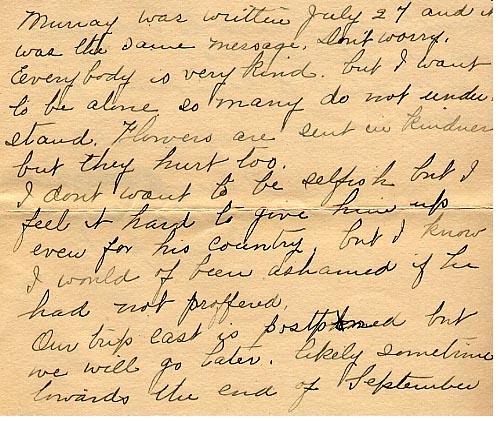 Murray was written July 27 and it
was the same message. Dont worry.
Everybody is very kind. but I want
to be alone so many do not under
stand. Flowers are sent in kindness
but they hurt too.
I dont want to be selfish but I
feel it hard to give him up
even for his country, but I know
I would of been ashamed if he
had not proffered.
Our trip east is postponed but
we will go later. likely sometime
towards the end of September